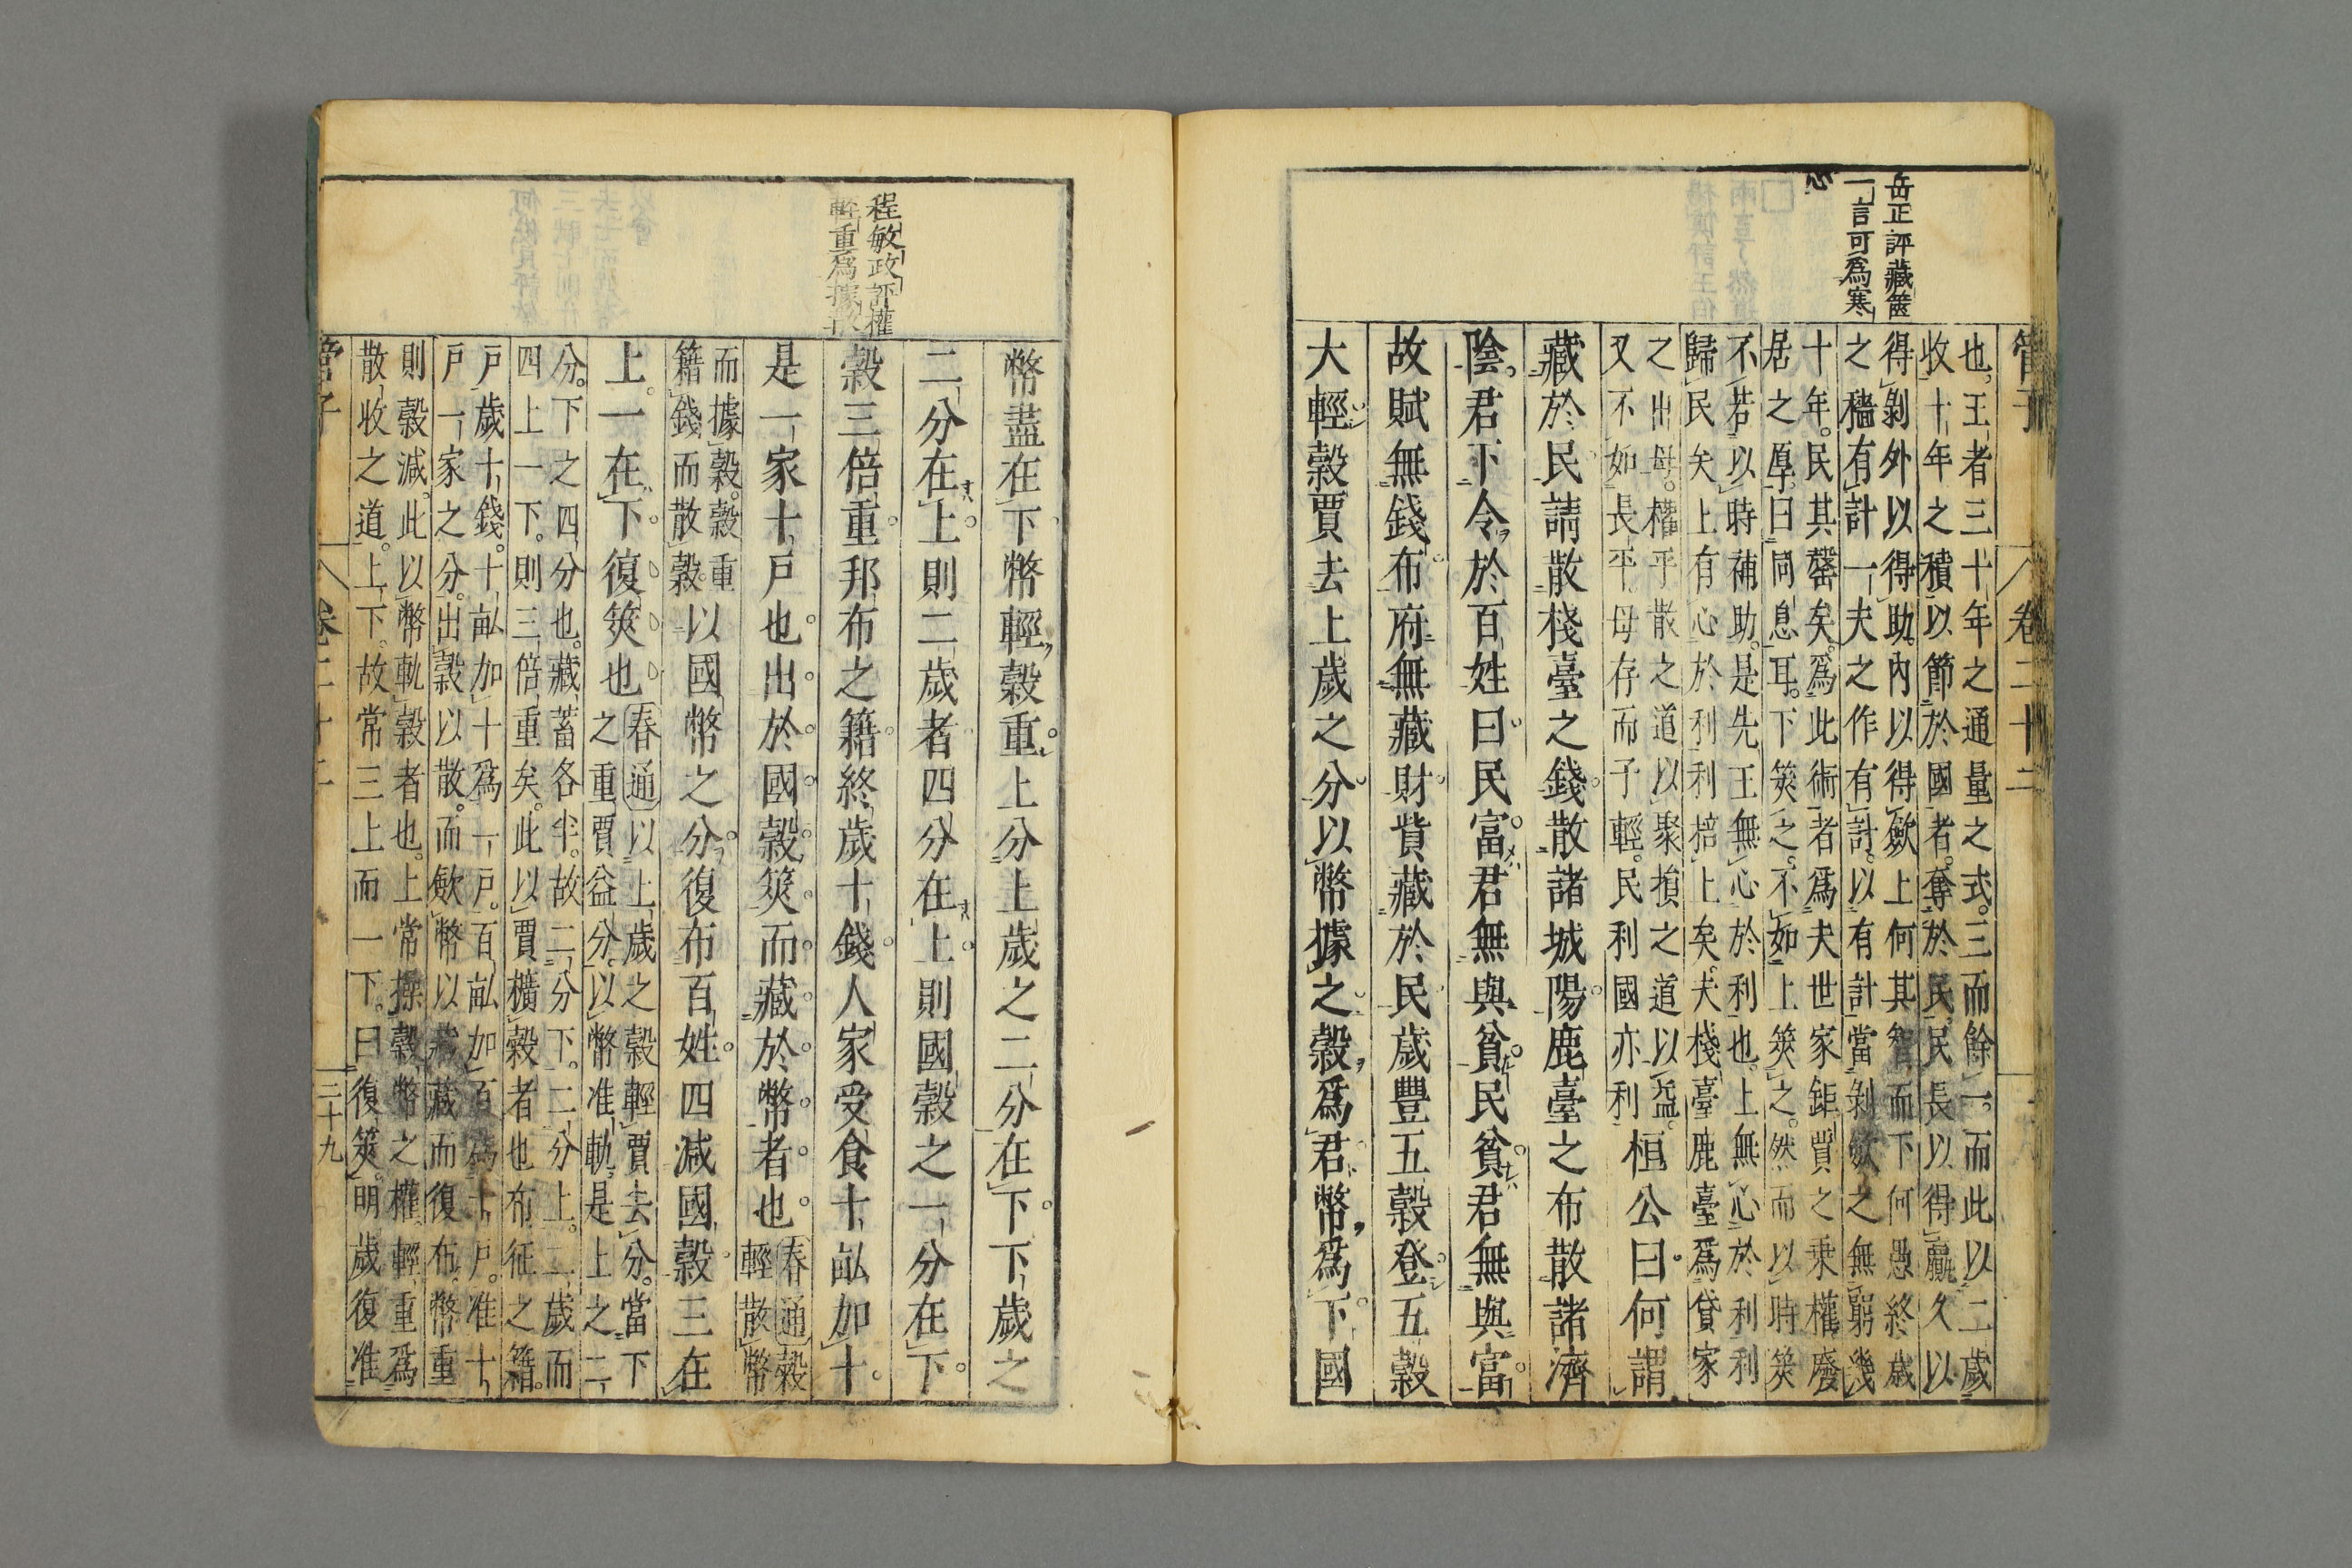 管子
卷二十二
岳正評藏篋
一言可爲寒
心
也王者三十年之通量之式三而餘一而此以二歲
收十年之積以節於國者奪於民民長以得贏久以
得剝外以得助內以得斂上何其智而下何愚終歲
之穡有計一夫之作有計以有計當剝斂之無窮幾
十年民其罄矣爲此術者爲夫世家鉅賈之乗權廢
居之厚曰同息耳下筴之不如上筴之然而以時筴
不若以時補助是先王無心於利也上無心於利利
歸民矣上有心於利利掊上矣夫棧臺鹿臺爲貸家
之出母權乎散之道以聚損之道以益
又不如長平母存而子輕民利國亦利
桓公曰何謂
藏於民請散棧臺之錢散諸城陽鹿臺之布散諸濟
陰君下令於百姓曰民富君無與貧民貧君無與富
故賦無錢布府無藏財貲藏於民歲豐五穀登五穀
大輕穀賈去上歲之分以幣據之穀爲君幣爲下國
程敏政評權
輕重爲據
幣盡在下幣輕穀重上分上歲之二分在下下歲之
二分在上則二歲者四分在上則國穀之一分在下
穀三倍重邦布之籍終歲十錢人家受食十畝加十
是一家十戶也出於國穀筴而藏於幣者也
春通穀
輕散幣
而據穀穀重
籍錢而散穀
以國幣之分復布百姓四減國穀三在
上一在下復筴也
春通以上歲之穀輕賈去分當下
之重賈益分以幣准軌是上之二
分下之四分也藏蓄各半故二分下二分上二歲而
四上一下則三倍重矣此以賈穬穀者也布征之籍
戶歲十錢十畝加十爲一戶百畝加百爲十戶准十
戶一家之分出穀以散而斂幣以藏藏而復布幣重
則穀減此以幣軌穀者也上常操穀幣之權輕重爲
散收之道上下故常三上而一下曰復筴明歲復准
管子
卷二十二
三十九